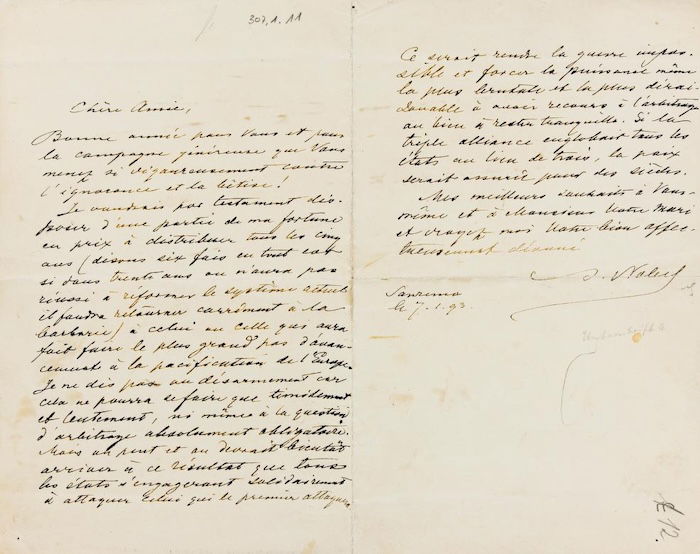 307,1.11
Chère Amie,
Bonne année pour Vous et pour
la campagne généreuse que Vous
menez si vigoureusement contre
l'ignorance et la bêtise!
Je voudrais par testament dis-
poser d'une partie de ma fortune
en prix à distribuer tous les cinq
ans (disons six fois en tout car
si dans trente ans on n'aura pas
réussi à réformer le système actuel
il faudra retourner carrément à la
barbarie) à celui ou celle qui aura
fait faire le plus grand pas d'avan-
cement à la pacification de l'Europe.
Je ne dis pas au désarmement car
cela ne pourra se faire que timidement
et lentement, ni même à la question
d'arbitrage absolument obligatoire.
Mais on peut et on devrait bientôt
arriver à ce résultat que tous
les états s'engageront solidairement
à attaquer celui qui le premier attaque.
Ce serait rendre la guerre impos-
sible et forcer la puissance même
la plus brutale et la plus dérai-
sonnable à avoir recours à l'arbitrage
ou bien à rester tranquille. Si la
triple alliance englobait tous les
états au lieu de trois, la paix
serait assurée pour des siècles.
Mes meilleurs souhaits à Vous-
même et à Monsieur Votre Mari
et croyez moi Votre bien affec-
tueusement dévoué
A. Nobel
Sanremo
le 7.1.93.
12.